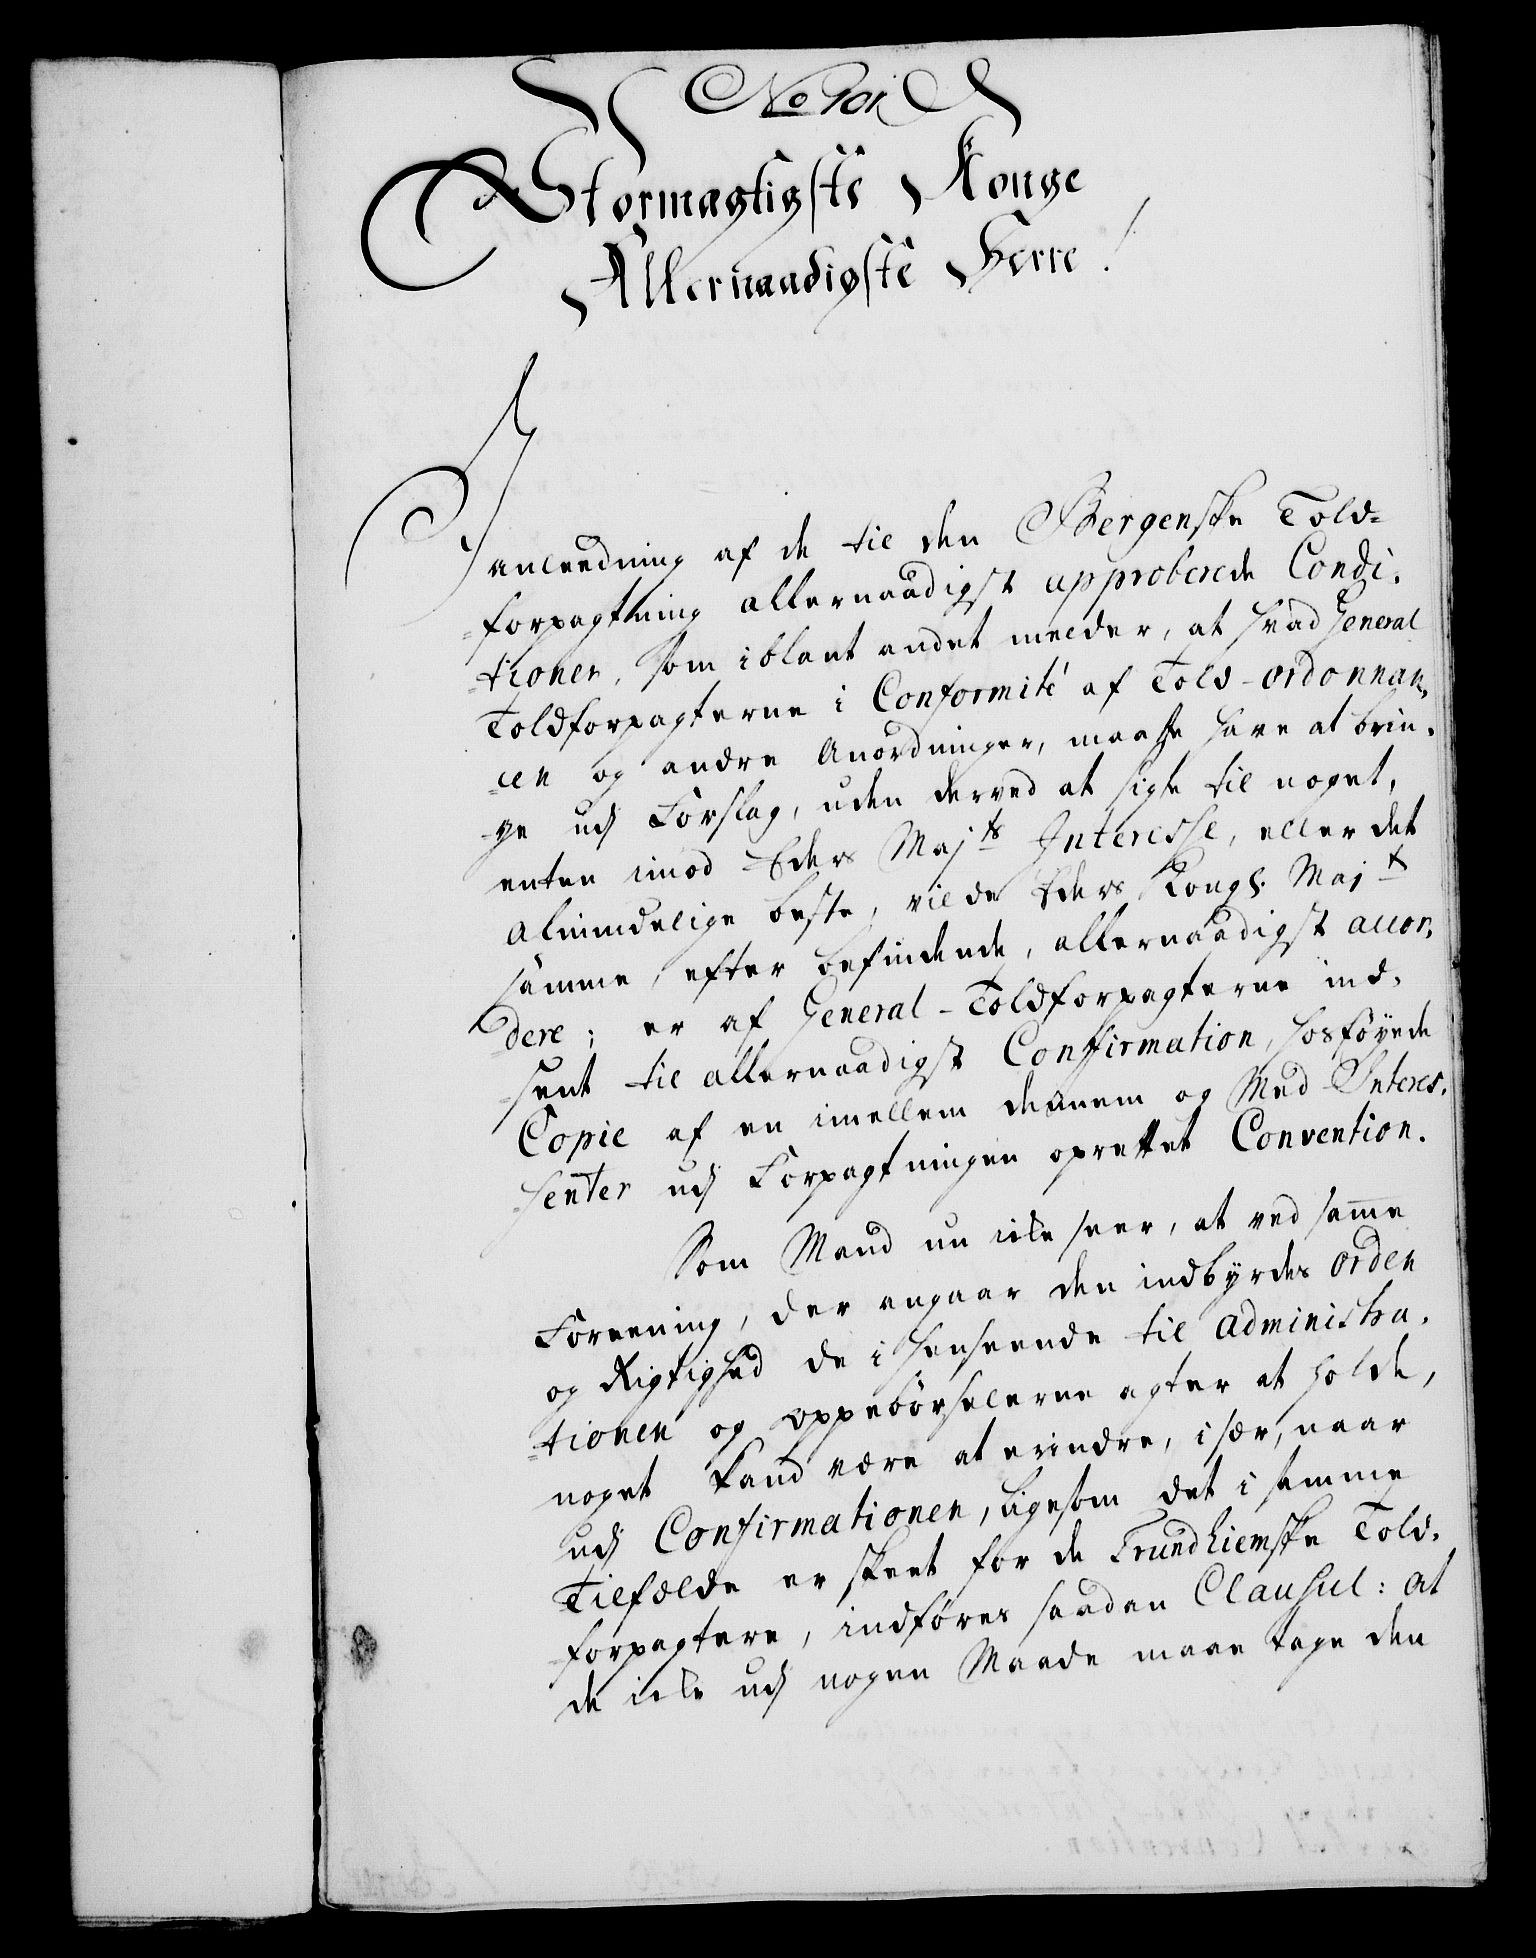 No 101
Stormægtigste Konge
Allernaadigste Herre!
I anleedning af de til den Bergenske Told-
-forpagtning allernaadigst approberede Condi-
-tioner, som iblant andet melder, at hvad General
Toldforpagterne i Conformité af Told-ordonnan-
-cen og andre Anordninger, maatte have at brin-
-ge udj Forslag, uden derved at sigte til noget,
enten imod Eders Majts Interesse, eller det
almindelige beste, vilde Eders Kongl. Majt
samme, efter befindende, allernaadigst accor-
-dere; er af General-Toldforpagterne ind-
-sent til allernaadigst Confirmation, hosføyede
Copie af en imellem dennem og Med-Interes-
-senter udj Forpagtningen oprettet Convention.
Som Mand nu icke seer, at ved samme
Foreening, der angaar den indbyrdes Orden
og Rigtighed de i henseende til Administra-
-tionen og Oppebørselerne agter at holde,
noget kand være at erindre, i sær, naar
udj Confirmationen, ligesom det i samme
Tilfælde er skeet for de Trundhiemske Told-
-forpagtere, indføres saadan Clausul: At
de icke udj nogen Maade maae tage den